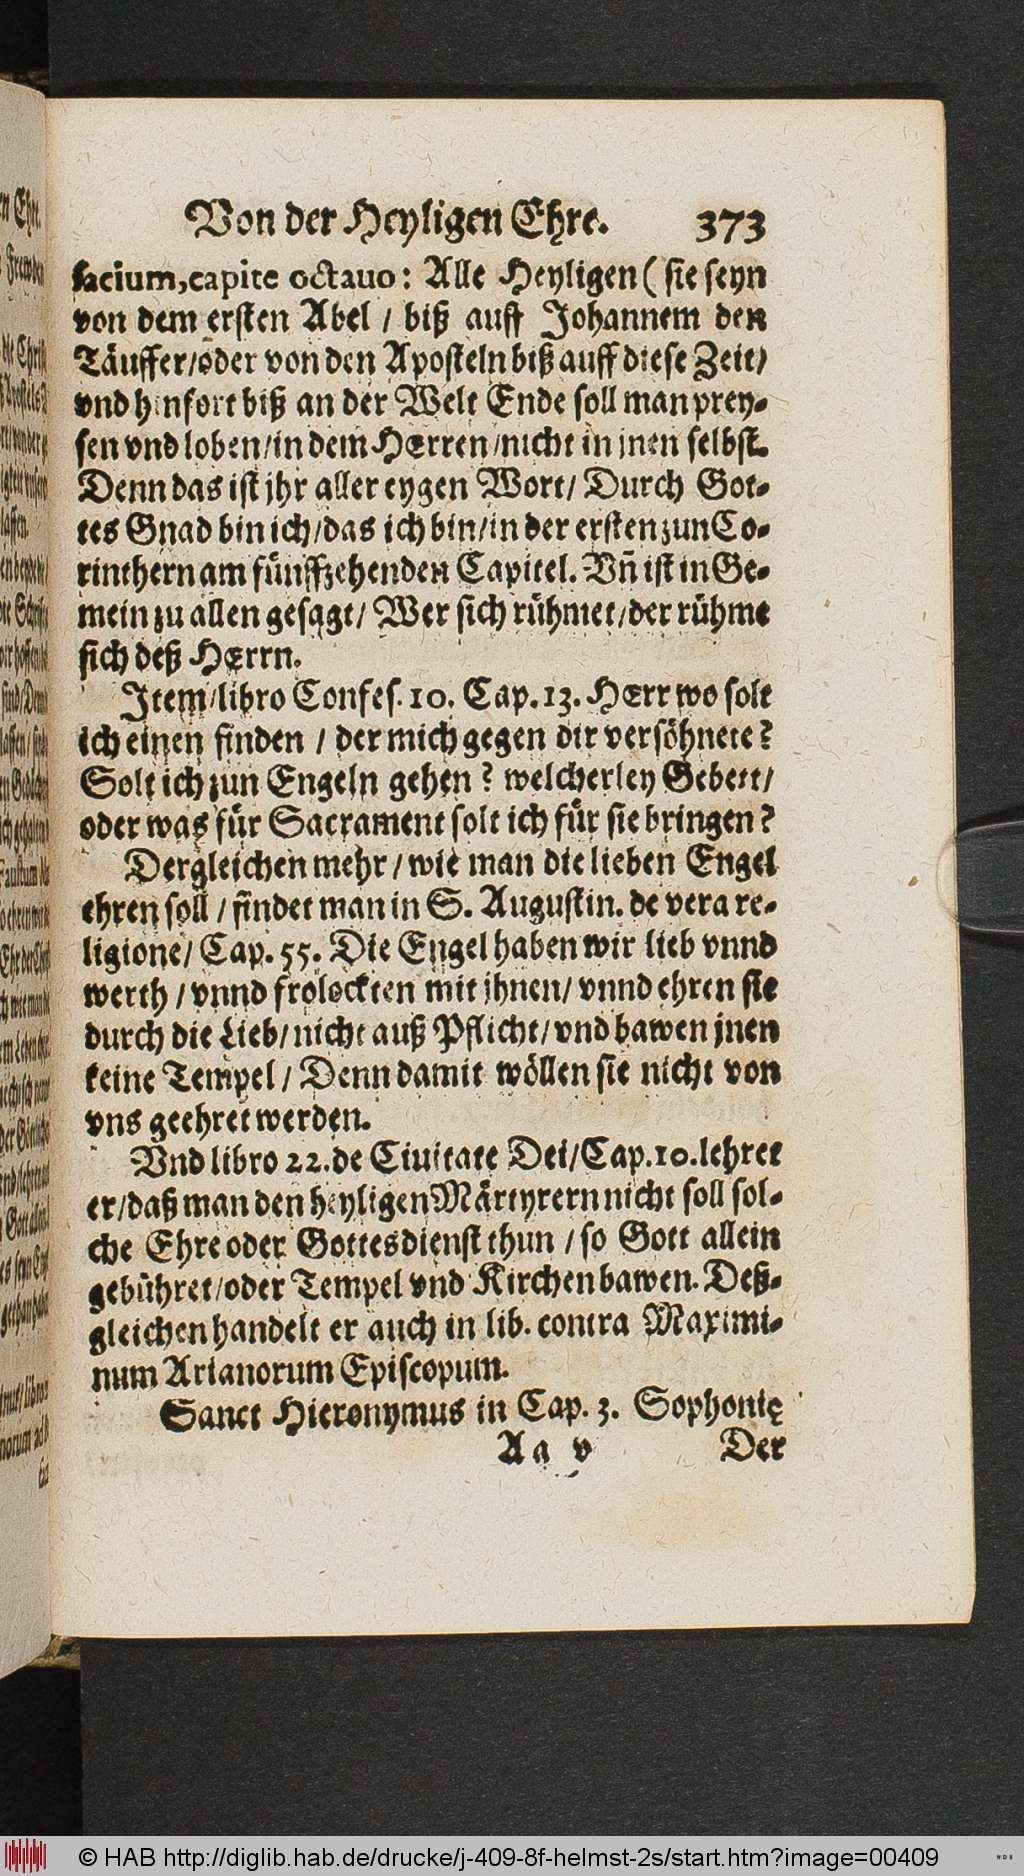 Von der Heyligen Ehre. 373
sacium, capite octauo: Alle Heyligen ( sie seyn
von dem ersten Abel / biß auff Johannem den
Täuffer/oder von den Aposteln biß auff diese Zeit/
vnd hinfort biß an der Welt Ende soll man prey-
sen vnd loben/in dem HErren/nicht in jnen selbst.
Denn das ist jhr aller eygen Wort/ Durch Got-
tes Gnad bin ich/das ich bin/in der ersten zun Co-
rinthern am fünffzehenden Capitel. Vñ ist in Ge-
mein zu allen gesagt/ Wer sich rühmet/der rühme
sich deß HErrn.
Item/libro Confes. 10. Cap. 13. HErr wo solt
ich einen finden / der mich gegen dir versöhnete?
Solt ich zun Engeln gehen? welcherley Gebett/
oder was für Sacrament solt ich für sie bringen?
Dergleichen mehr / wie man die lieben Engel
ehren soll / findet man in S. Augustin. de vera re-
ligione/ Cap. 55. Die Engel haben wir lieb vnnd
werth / vnnd frolockten mit jhnen/ vnnd ehren sie
durch die Lieb/ nicht auß Pflicht/ vnd bawen jnen
keine Tempel / Denn damit wöllen sie nicht von
vns geehret werden.
Vnd libro 22. de Ciuitate Dei/Cap. 10. lehret
er/daß man den heyligen Märtyrern nicht soll sol-
che Ehre oder Gottesdienst thun / so Gott allein
gebühret/oder Tempel vnd Kirchen bawen. Deß-
gleichen handelt er auch in lib. contra Maximi-
num Arianorum Episcopum.
Sanct Hieronymus in Cap. 3. Sophonię
A a v Der
© HAB http://diglib.hab.de/drucke/j-409-8f-helmst-2s/start.htm?image=00409